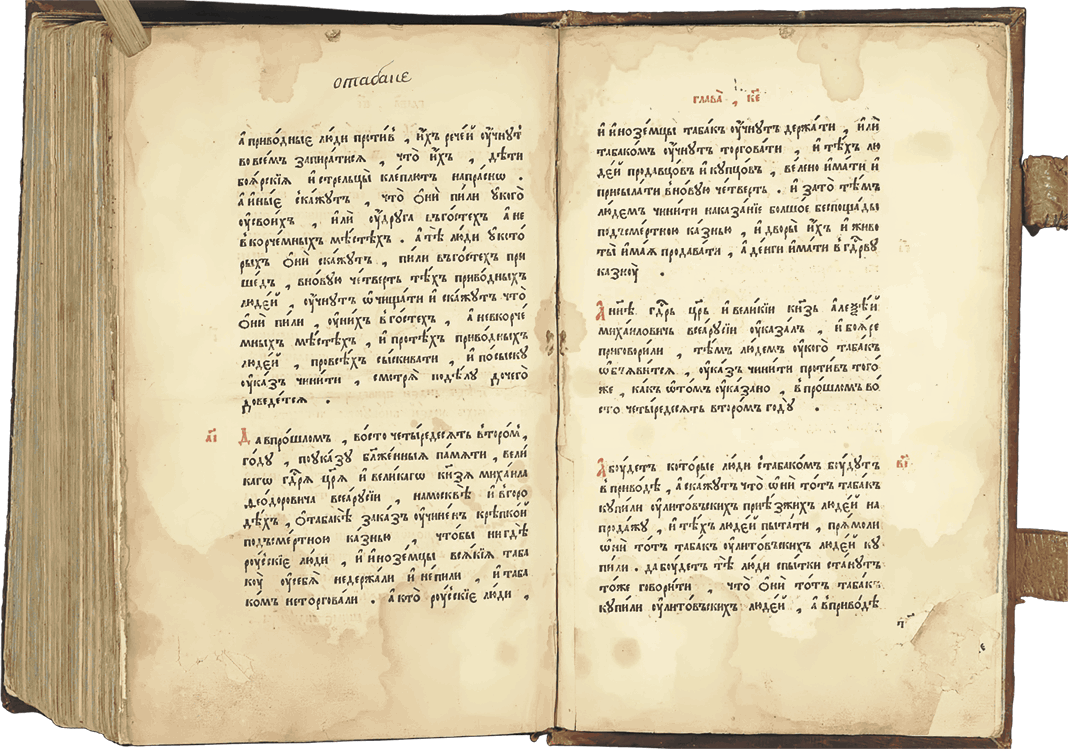 отабаке
а҆ приво́дные лю́ди против̾ , и҆́хъ рече́й ᲂу҆чнут̾
во всемъ запира́тися , что̀ и҆́хъ , дѣ́ти
боя́рскїѧ и҆ стрельцы̀ клеплютъ напра́снѡ .
а҆ и҆ны́е ска́жутъ , что̀ ѻ҆нѝ пи́ли ᲂу҆кого̀
ᲂу҆свои́хъ , и҆лѝ ᲂу҆дру́га въгостехъ а҆ не
в̾корче́мныхъ мѣ́стѣхъ . а҆ тѣ̀ лю́ди ᲂу҆кото́
рыхъ ѻ҆нѝ скажутъ , пи́ли въгостехъ при
ше́дъ , внову́ю че́тверть тѣ́хъ приво́дныхъ
люде́й , ᲂу҆чну́тъ ѡ҆чища́ти и҆ ска́жутъ что̀
ѻ҆нѝ пи́ли , ᲂу҆ни́хъ в̾го́стехъ , а҆ невкорче
мныхъ мѣ́стѣхъ , и҆ протѣ́хъ приво́дныхъ
люде́й , провсѣ́хъ сы́скивати , и҆ посы́ску
ᲂу҆ка́зъ чини́ти , смотрѧ̀ подѣ́лу дочего̀
доведе́тся .
а҃і Да впро́шломъ , восто четы́редесять в̾торо́м̾ ,
го́ду , поука́зу блаже́нныя па́мяти , вели́
кагѡ гдⷭ҇рѧ цр҃ѧ̀ и҆ вели́кагѡ кн҃зѧ миха́ила
ѳеодоровича всеа҆русі́и , намосквѣ̀ и҆ в̾горо
дѣ́хъ , ѻ҆табакѣ̀ зака́зъ ᲂу҆чине́нъ крѣ́пкой
подъсме́ртною ка́знью , что́бы нигдѣ̀
рᲂу́сскїе лю́ди , и҆ и҆ноземцы всѧ́кїѧ таба
кᲂу̀ ᲂу҆себѧ̀ недержа́ли и҆ непи́ли , и҆ таба
ко́мъ неторгова́ли . а҆ кто̀ рᲂу́сскїе лю́ди ,
глава̀ , к҃е
и҆ и҆ноземцы таба́къ ᲂу҆чну́тъ держа́ти , и҆лѝ
табако́мъ ᲂу҆чну́тъ торгова́ти , и҆ тѣ́хъ лю
де́й продавцо́въ и҆ купцо́въ , ве́лено и҆ма́ти и҆
присыла́ти внову́ю че́тверть . и҆ зато̀ тѣ́мъ
лю́демъ чини́ти наказа́нїе большо́е беспоща́ды
подъсме́ртною ка́знью , и҆ дворы̀ и҆́хъ и҆ живо
ты̀ и҆ма́ѧ продава́ти , а҆ де́нги и҆ма́ти в̾гдⷭ҇рву
казнᲂу̀ .
А нн҃ѣ гдⷭ҇рь цр҃ь и҆ вели́кїи кн҃зь а҆леѯѣ́й
миха́иловичь всеа҆русі́и ᲂу҆каза́лъ , и҆ боѧ́ре
приговори́ли , тѣ́мъ лю́демъ ᲂу҆кого̀ таба́къ
ѡ҆бъѧ́витсѧ , ᲂу҆ка́зъ чини́ти против̾ того̀
же , ка́къ ѡ҆то́мъ ᲂу҆ка́зано , в̾про́шломъ во
сто̀ четы́редесять второ́мъ годᲂу̀ .
А бᲂу́детъ кото́рые лю́ди стабако́мъ бᲂу́дутъ в҃і
в̾приво́дѣ , а҆ ска́жутъ что̀ ѡ҆нѝ то́тъ таба́къ
купи́ли ᲂу҆лито́въскихъ прїѣ́зжихъ люде́й на
прода́жу , и҆ тѣ́хъ люде́й пыта́ти , прѧ́моли
ѡ҆нѝ то́тъ таба́къ ᲂу҆лито́въскихъ люде́й ку
пи́ли . да бᲂу́детъ тѣ̀ лю́ди спы́тки ста́нутъ
то́же говори́ти , что̀ ѻ҆нѝ то́тъ таба́къ
купи́ли ᲂу҆лито́въскихъ люде́й , а҆ в̾приво́дѣ